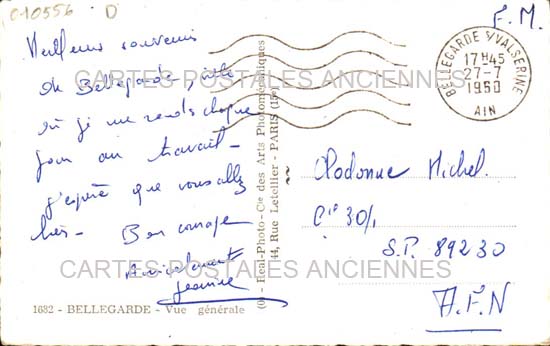 C-10556 D
F.M.
BELLEGARDE S/VALSERINE
17H45
27-7
1960
AIN
Meilleurs souvenirs
de Bellegarde, ville
où je me rends chaque
jour au travail-
j'espère que vous allez
bien- Bon courage
Amicalement
Jeanine
CARTES POSTALES ANCIENNES
Real-Photo - Cie des Arts Photomécaniques
44, Rue Letellier - PARIS (15e)
Michel
Cie 30/1
S.P. 89230
A.F.N
CARTES POSTALES ANCIENNES
1682 - BELLEGARDE - Vue générale